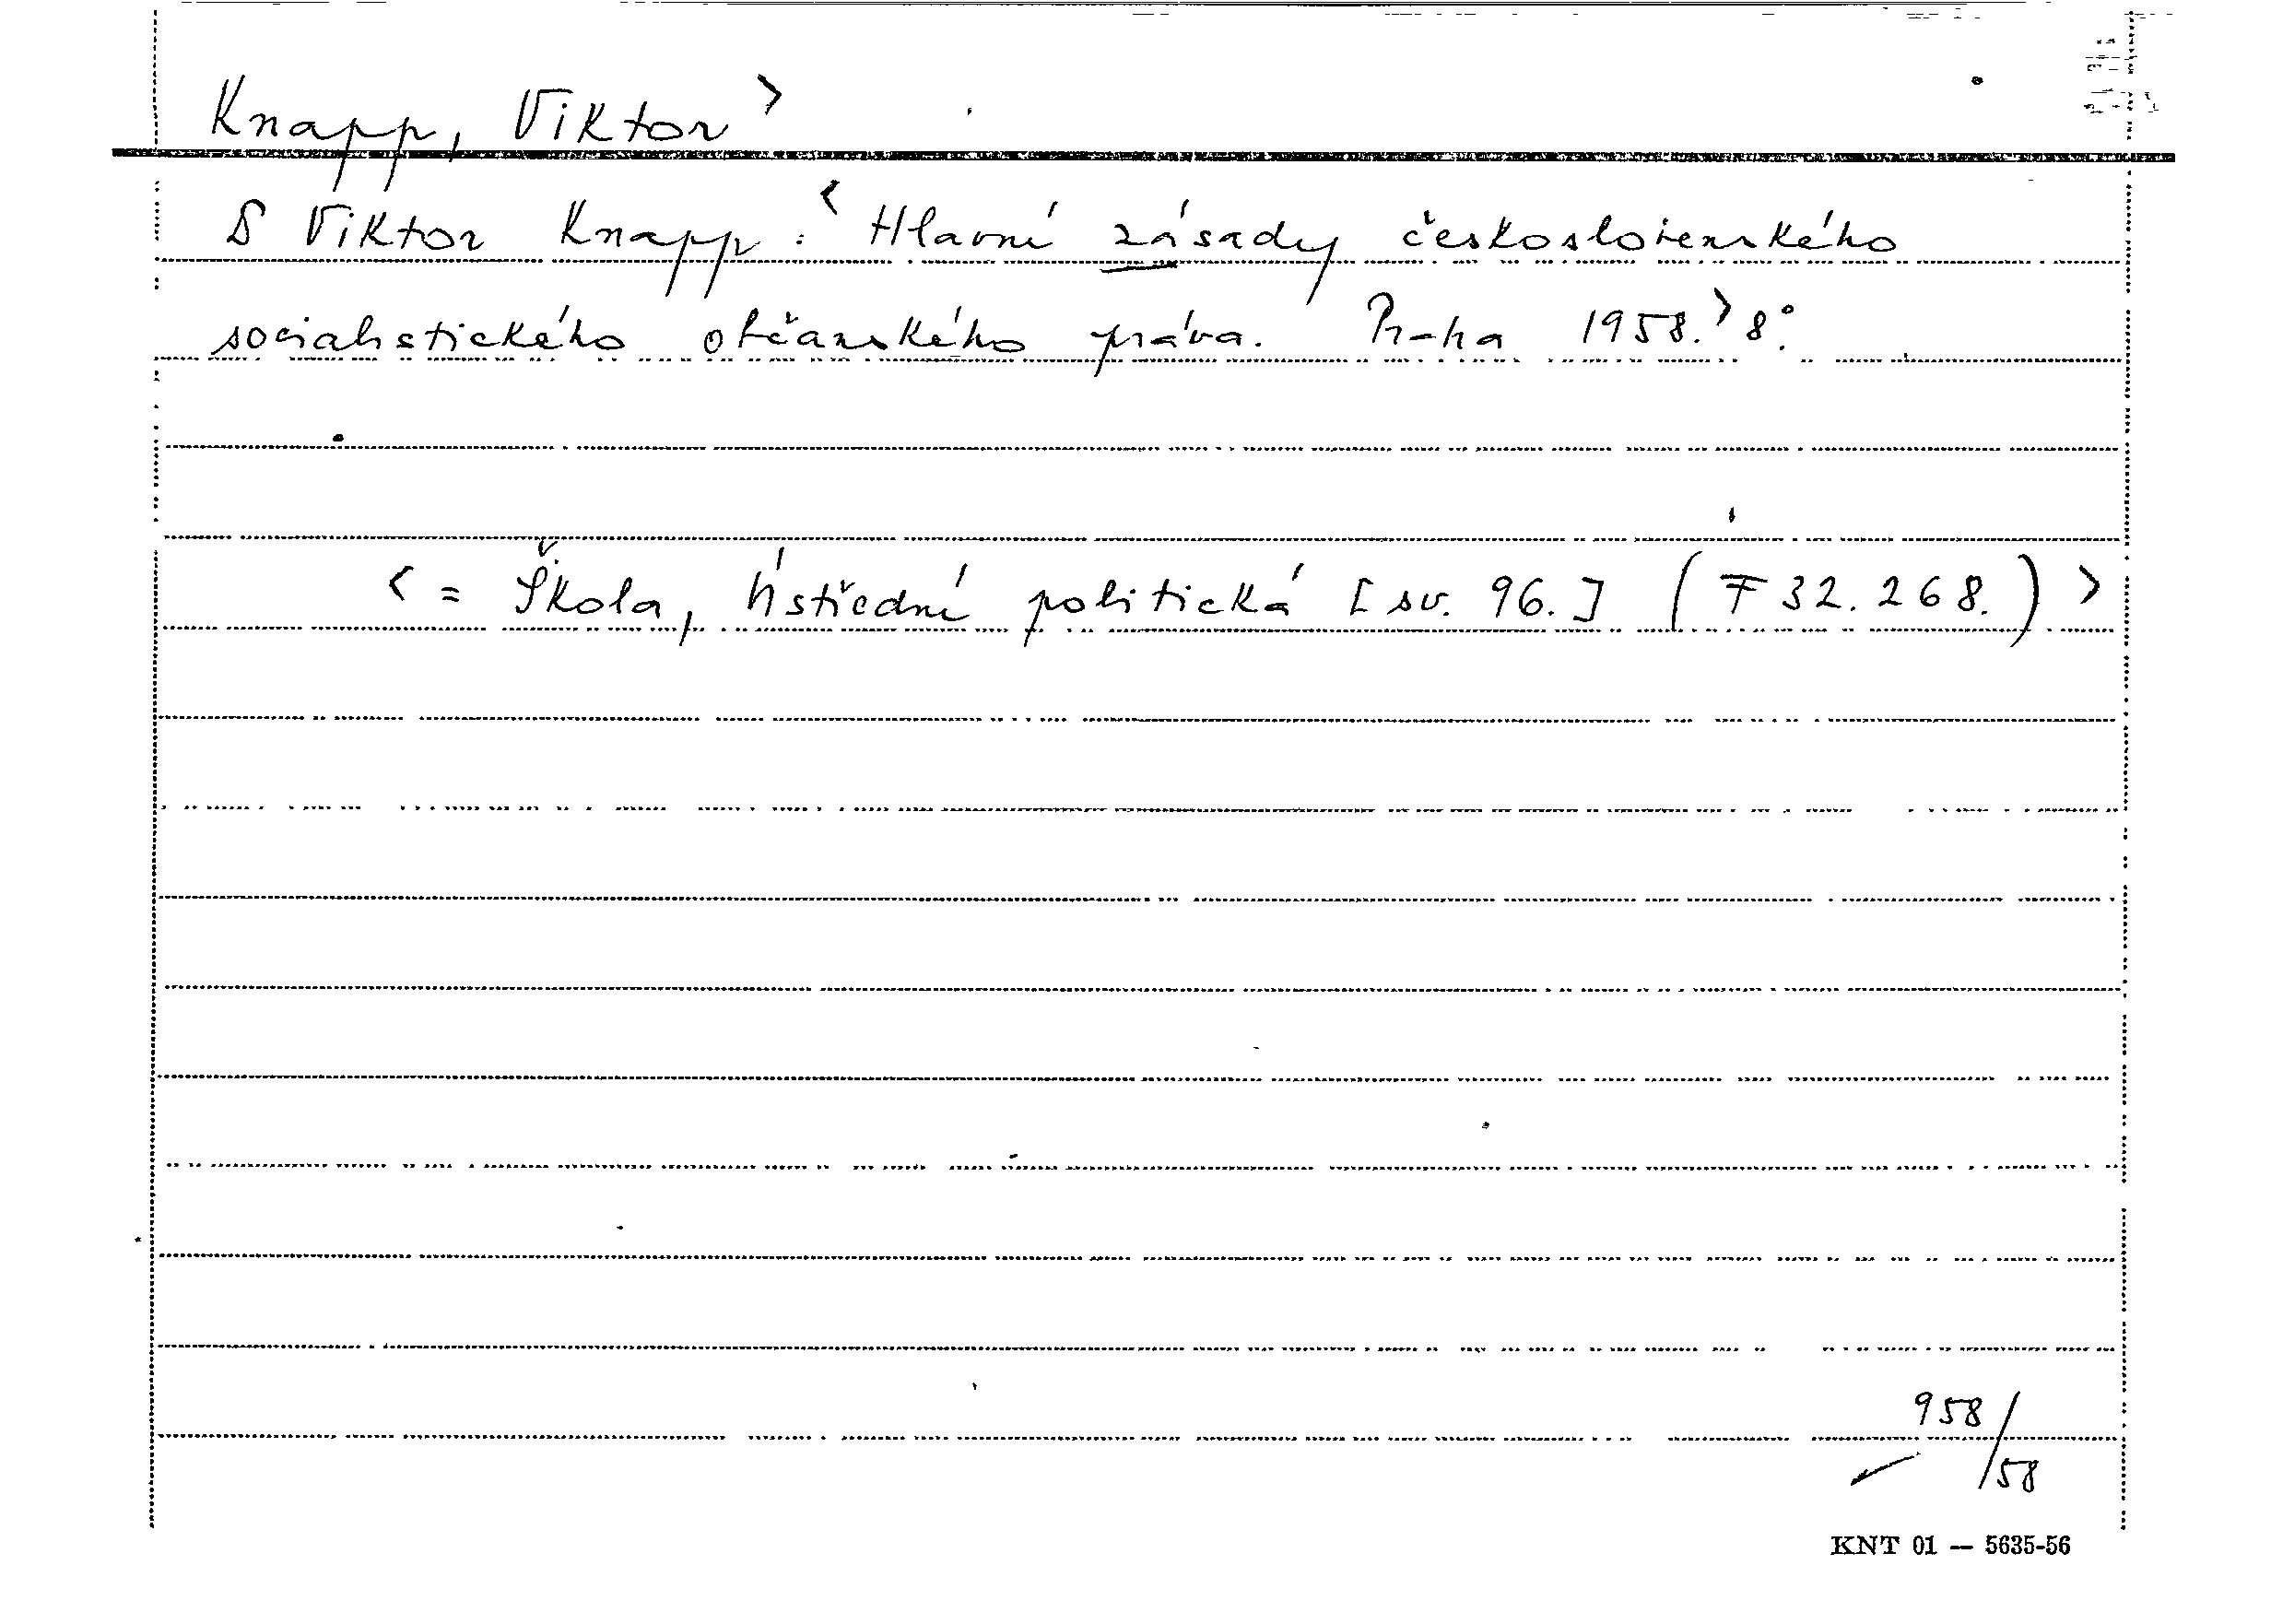 Knapp, Viktor>
S Viktor Knapp: <Hlavní zásady československého
socialistického občanského práva. Praha 1958.> 8°.
<= Škola, Ústřední politická [sv. 96.] (F 32.268.)>
958/
58
KNT 01 — 5635-56